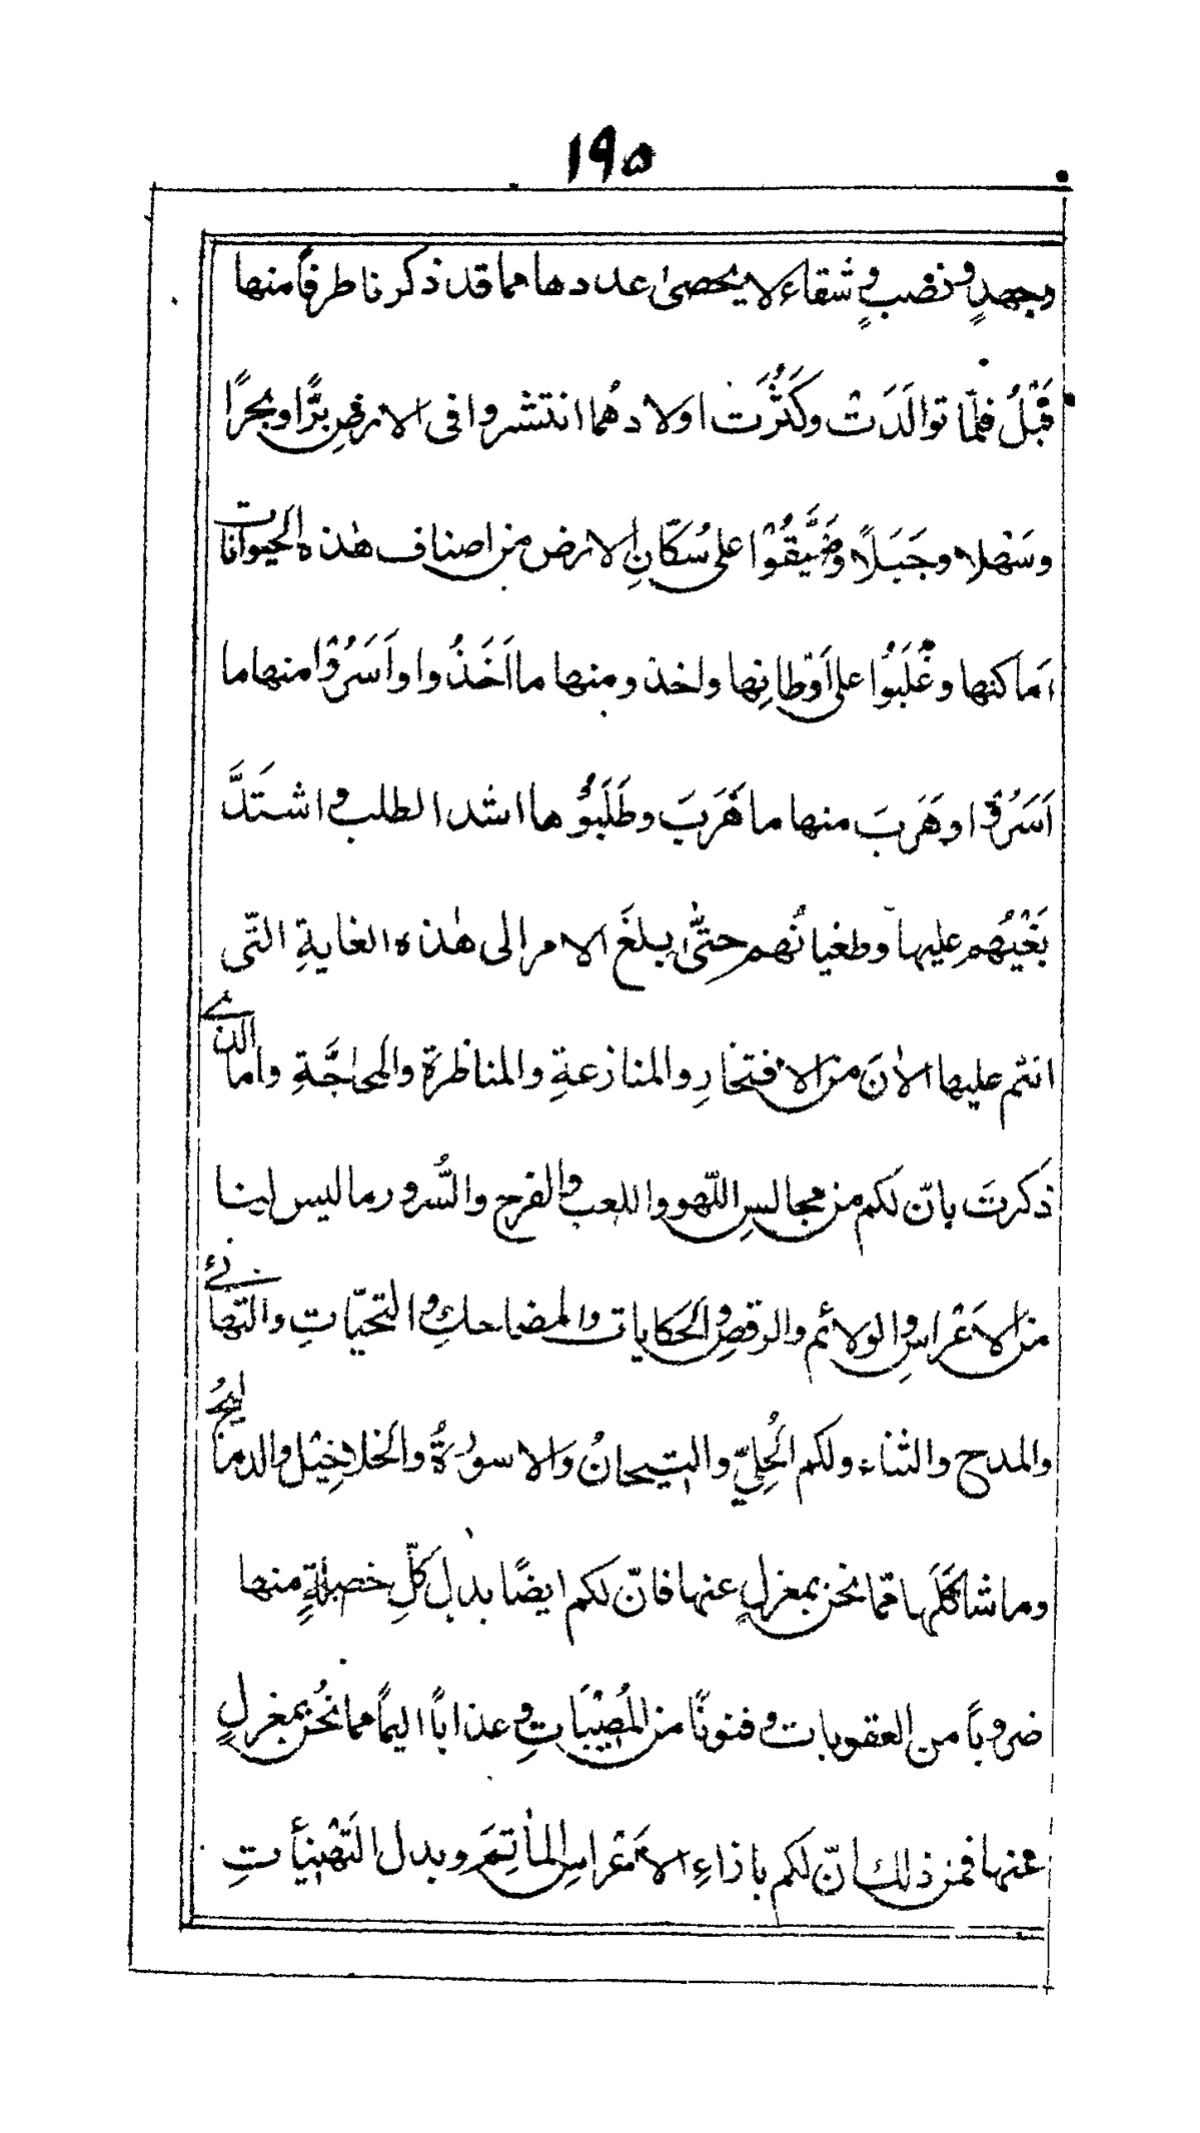 ١٩٥
وجهدٍ ونصبٍ وشقاء لا يحصىٰ عددها مما قد ذكرنا طرفًا منها
قَبْلُ فلمّا توالَدَتْ وكَثُرَت اولادهُما انتشروا فى الارضِ برًّا وبحرًا
وسَهْلا وجَبَلًا وضَيَّقُوْا على سُكّانِ الارض من اصناف هٰذه الحيوانات
اَماكنها وغُلَبُوا على اَوْطانِها واخذو منها ما اَخَذُوا واَسَرُوْا منها ما
اَسَرُوْا وهَرَبَ منها ما هَرَبَ وطَلَبُوها اشد الطلب و اشتَدَّ
بَغْيُهُم عليها وطغيانُهم حتّٰى بلغَ الامر الى هٰذه الغايةِ التّى
انتم عليها الاٰنَ من الافتخارِ والمنازعةِ والمناظرة والمحاجَّةِ واما الذے
ذكرتَ بانّ لكم من مجالسِ اللّهو واللعب والفرح والسُّرور ما ليس لنا
من الاَعْراسِ والولائم والرقصِ والحكايات والمضاحكِ والتحيّاتِ والتهانئے
والمدح والثناء ولكم الحُلِيّ والتيجانُ والاسورةُ والخلاخِيْل والدمالِيجُ
وما شاكَلَها ممّا نحن بمعزلٍ عنها فانّ لكم ايضًا بدل كلّ خصلةٍ منها
ضروبًا من العقوبات وفنونًا من المُصِيْبَاتِ وعذابًا اليمًا مما نحُن بمعزلٍ
عنها فمن ذلك انّ لكم بازاءِ الاَعْراسِ المأتِمَ وبدل التَهْنِيأتِ